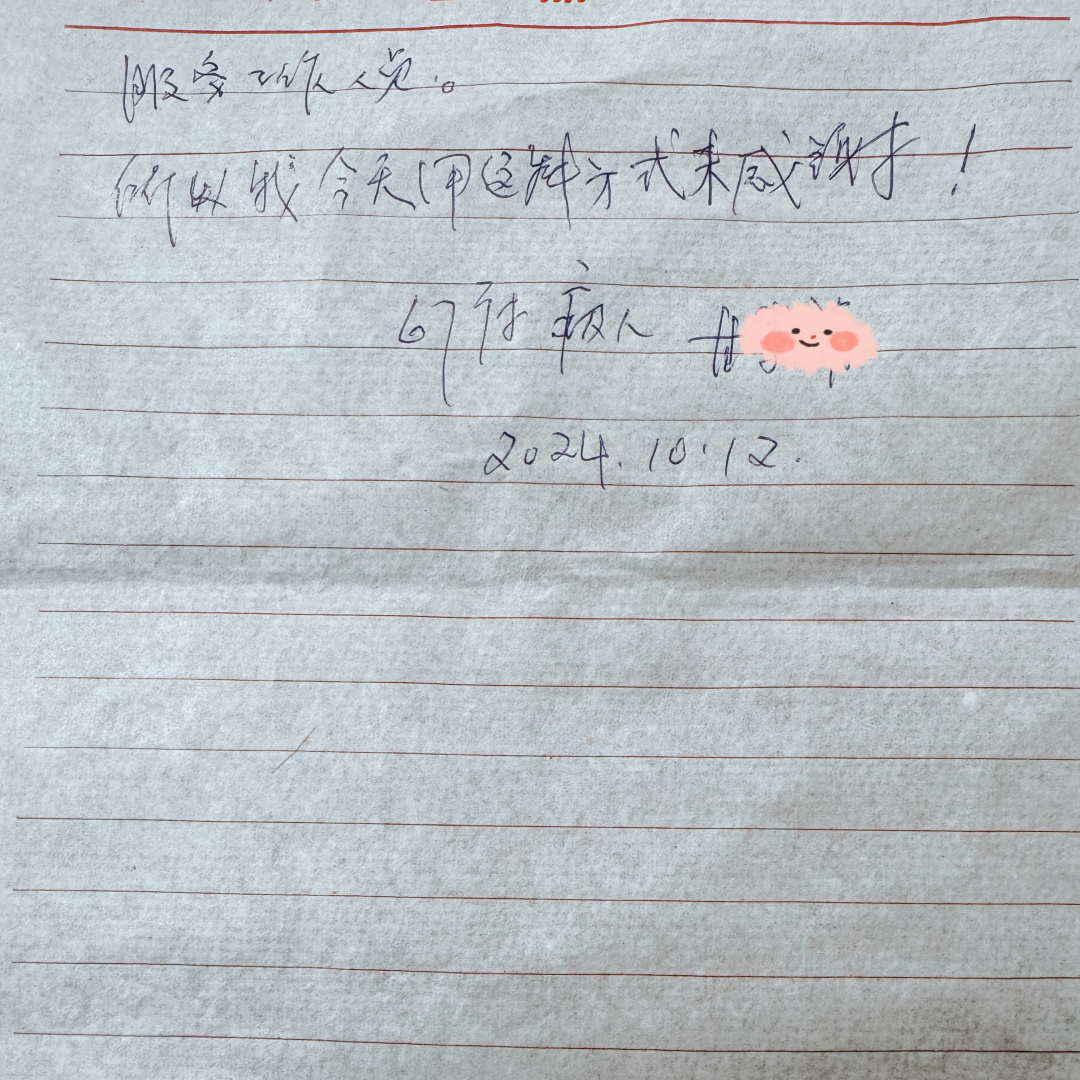 服务工作人员。
所以我今天用这种方式来感谢!
67床 病人
2024.10.12.